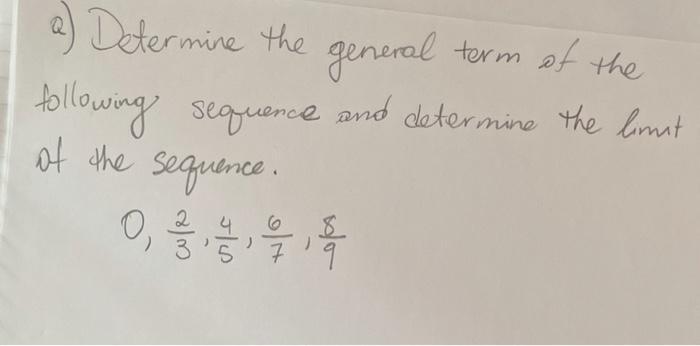 Q) Determine the general term of the
following sequence and determine the limit
of the sequence.
0, 2/3, 4/5, 6/7, 8/9